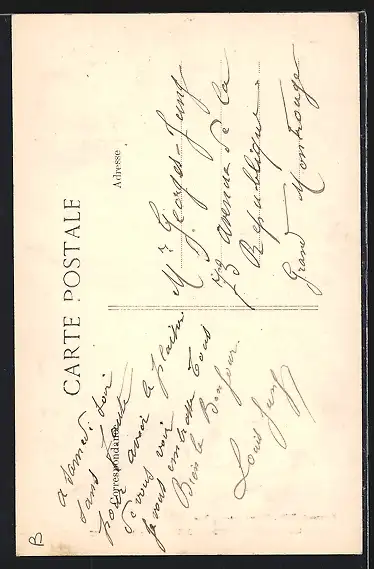 CARTE POSTALE
Correspondance
Adresse
a samedi soir
sans faute
pour avoir le plaisir
de vous voir
je vous embrasse tous
Bien le Bonjour.
Louis Jung
Mr Georges Jung
73 avenue de la
Republique
Grand Montrouge
B